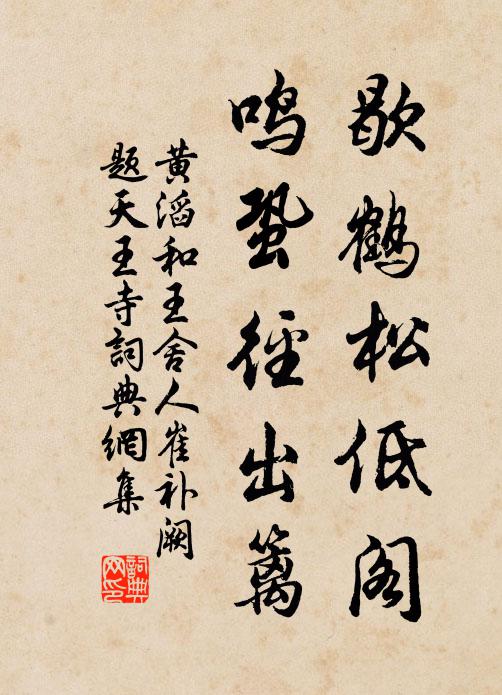 歇鶴松低阁
鸣蛩径出篱
黄滔和王舍人崔补阙
题天王寺詞典網集
詞典网印